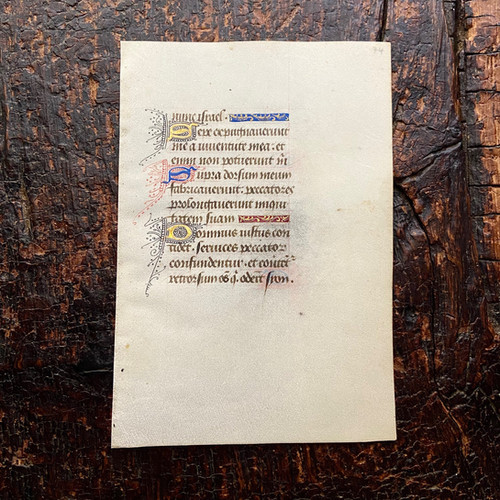 nunc israel.
Sepe expugnaverunt
me a iuventute mea: et
enim non potuerunt m̄
Supra dorsum meum
fabricaverunt peccatores
prolongaverunt iniqui
tatem suam
Dominus iustus con
cidet cervices peccator
confundentur et
retrorsum oēs q̄ oder̄t sion.